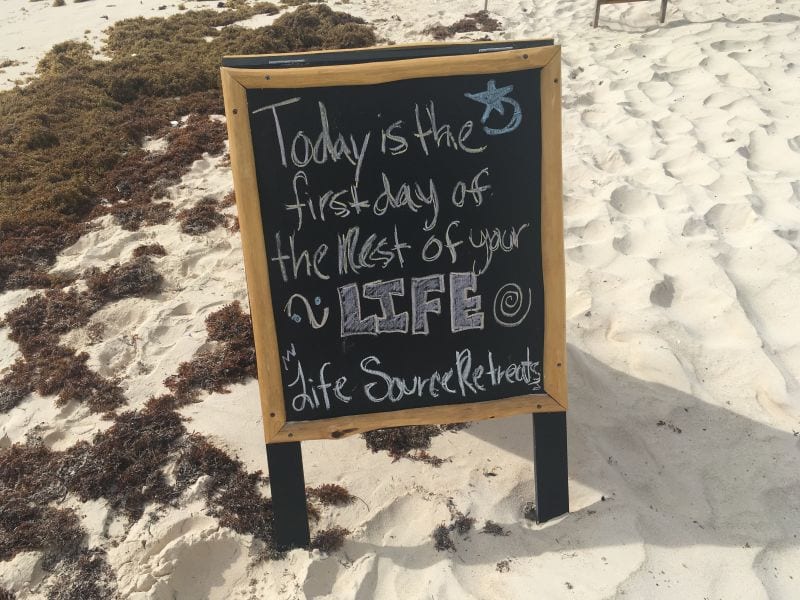 Today is the
first day of
the Rest of your
LIFE
Life Source Retreats